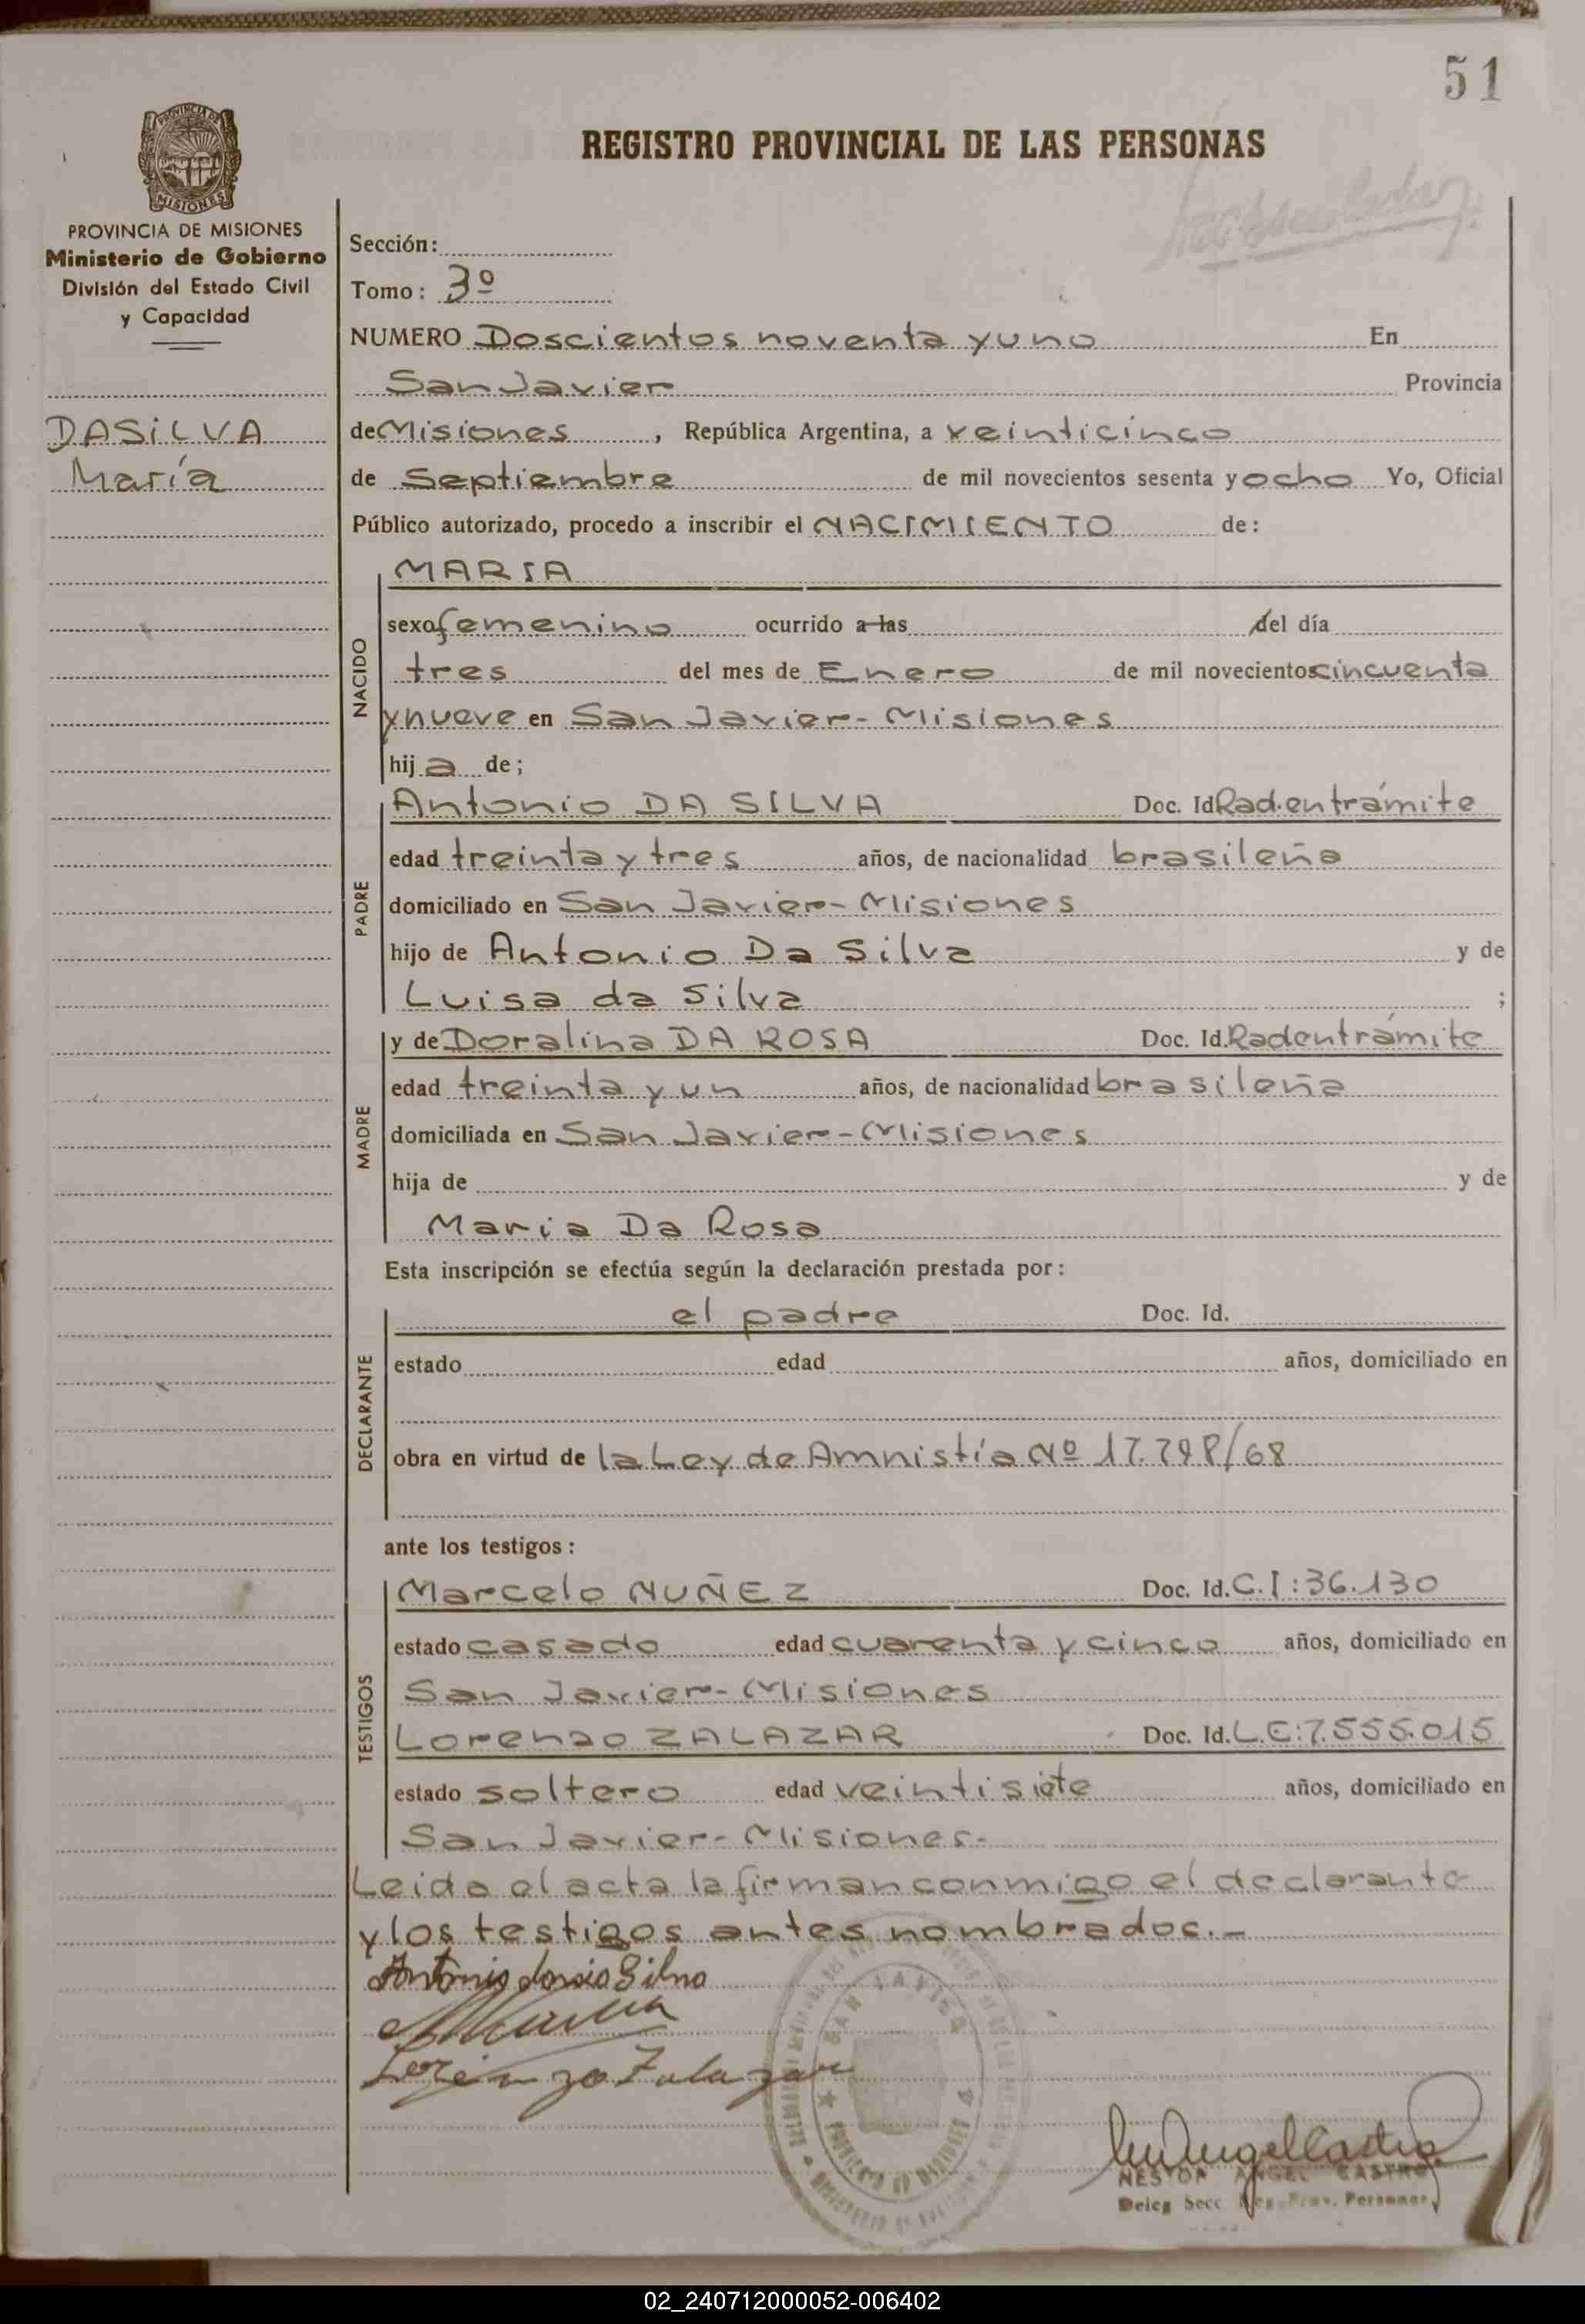 51
REGISTRO PROVINCIAL DE LAS PERSONAS
PROVINCIA DE MISIONES
Ministerio de Gobierno
División del Estado Civil
y Capacidad
DASILVA
María
Sección:
Tomo: 3º
NUMERO Doscientos noventa y uno En
San Javier Provincia
de Misiones, República Argentina, a veinticinco
de Septiembre de mil novecientos sesenta y ocho Yo, Oficial
Público autorizado, procedo a inscribir el NACIMIENTO de:
NACIDO
MARIA
sexo femenino ocurrido a las del día
tres del mes de Enero de mil novecientos cincuenta
y nueve en San Javier-Misiones
hija de;
PADRE
Antonio DA SILVA Doc. Id Rad. en trámite
edad treinta y tres años, de nacionalidad brasileña
domiciliado en San Javier-Misiones
hijo de Antonio Da Silva y de
Luisa da Silva ;
MADRE
y de Doralina DA ROSA Doc. Id. Rad en trámite
edad treinta y un años, de nacionalidad brasileña
domiciliada en San Javier-Misiones
hija de y de
Maria Da Rosa
Esta inscripción se efectúa según la declaración prestada por:
DECLARANTE
el padre Doc. Id.
estado edad años, domiciliado en
obra en virtud de la Ley de Amnistía Nº /68
ante los testigos:
TESTIGOS
Marcelo NUÑEZ Doc. Id. C.I:36.130
estado casado edad cuarenta y cinco años, domiciliado en
San Javier-Misiones
Lorenzo ZALAZAR Doc. Id. L.E:7.555.015
estado soltero edad veintisiete años, domiciliado en
San Javier-Misiones.
Leida el acta la firman conmigo el declarante
y los testigos antes nombrados.-
Antonio Silva
Lorenzo Zalazar
SAN JAVIER
PROVINCIA DE MISIONES
NESTOR ANGEL CASTRO
Deleg Secc Reg. Prov. Personas
02_240712000052-006402